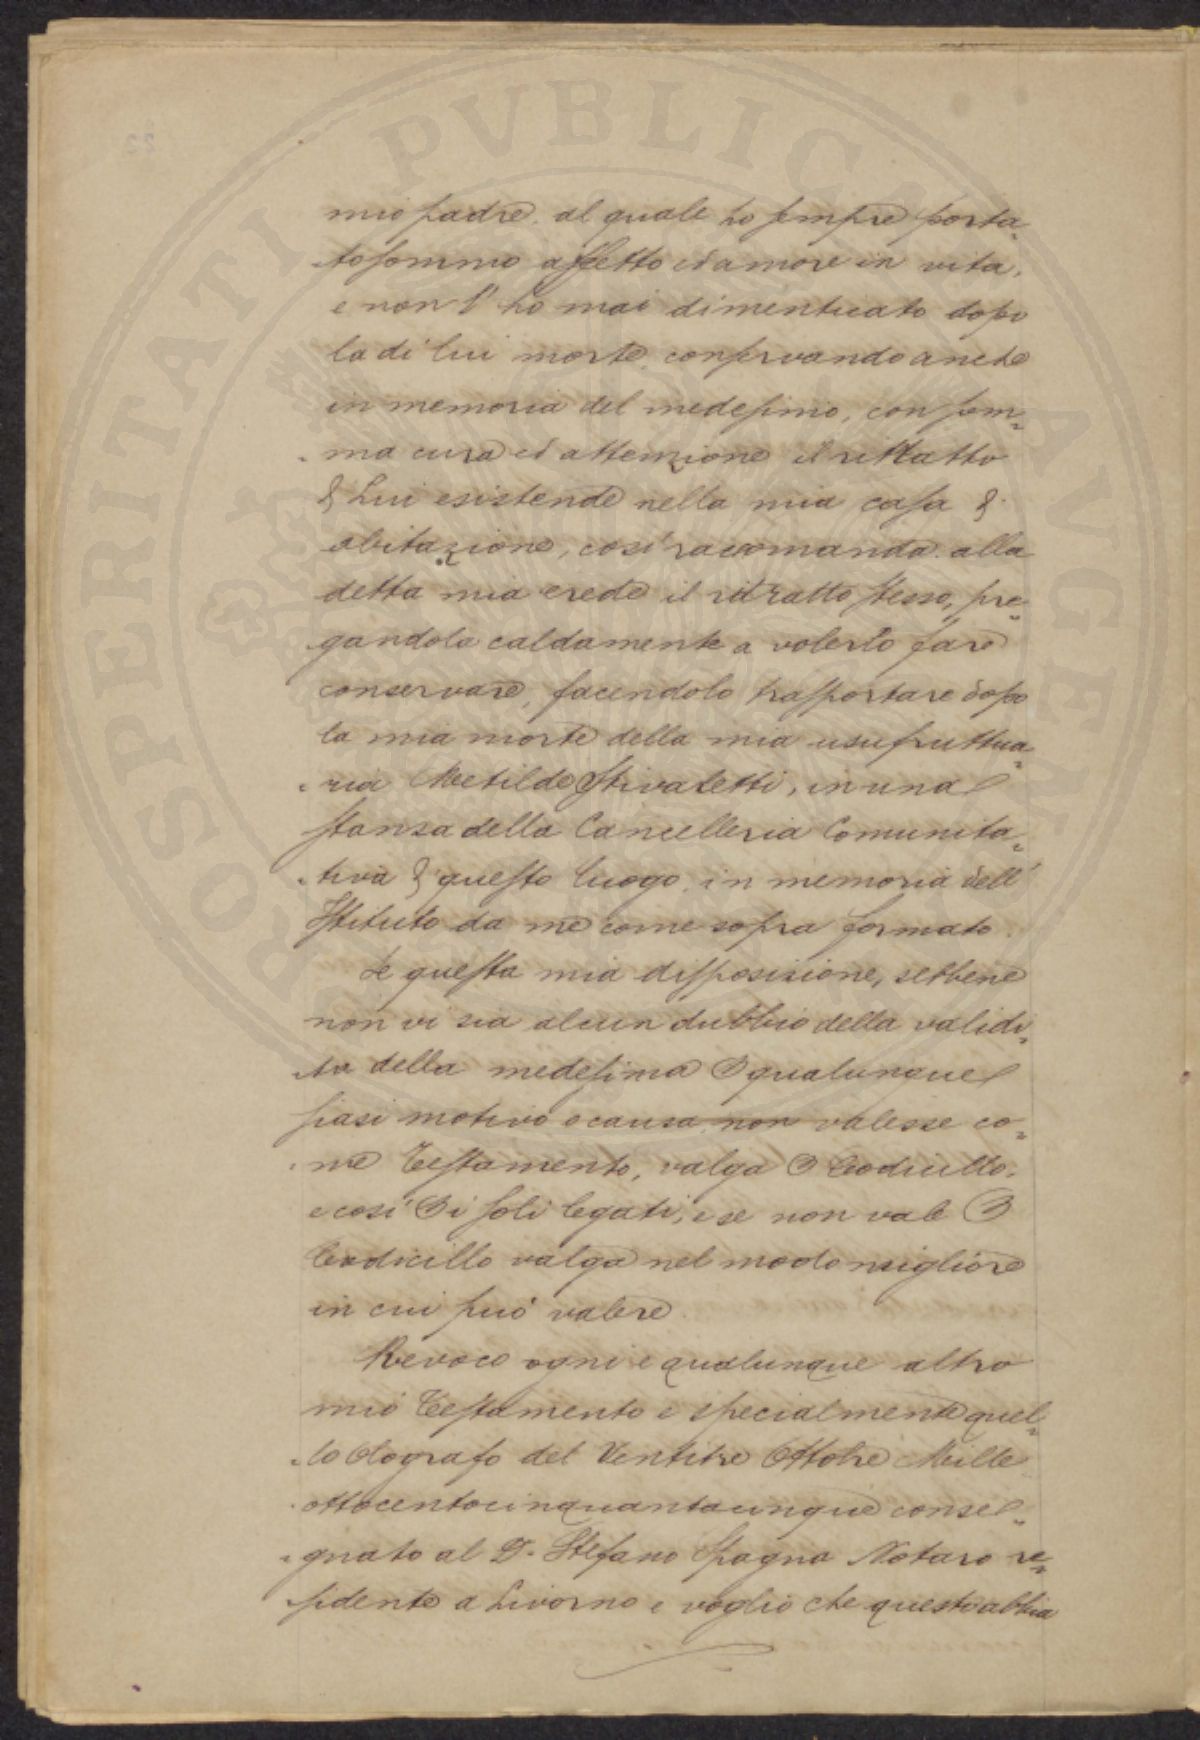 mio padre, al quale ho sempre porta-
to sommo affetto ed amore in vita,
e non l'ho mai dimenticato dopo
la di lui morte, conservando anche
in memoria del medesimo, con som-
ma cura ed attenzione il ritratto
di Lui esistende nella mia casa di
abitazione, così raccomando alla
detta mia erede il ritratto stesso, pre-
gandola caldamente a volerlo fare
conservare, facendolo trasportare dopo
la mia morte della mia usufruttua-
ria Metilde Stivaletti, in una
stansa della Cancelleria Comunita-
tiva di questo luogo, in memoria dell'
Istituto da me come sopra formato.
Se questa mia disposisione, sebbene
non vi sia alcun dubbio della validi-
tà della medesima per qualunque
siasi motivo o causa non valesse co-
me Testamento, valga per Codicillo,
e così per i soli legati, e se non vale per
Codicillo valga nel modo migliore
in cui può valere.
Revoco ogni e qualunque altro
mio Testamento e specialmente quel-
lo Olografo del Ventitre Ottobre Mille
ottocentocinquantacinque conse-
gnato al D. Stefano Spagna Notaro re-
sidente a Livorno e voglio che questo abbia
PROSPERITATI PVBLICAE AVGENDAE